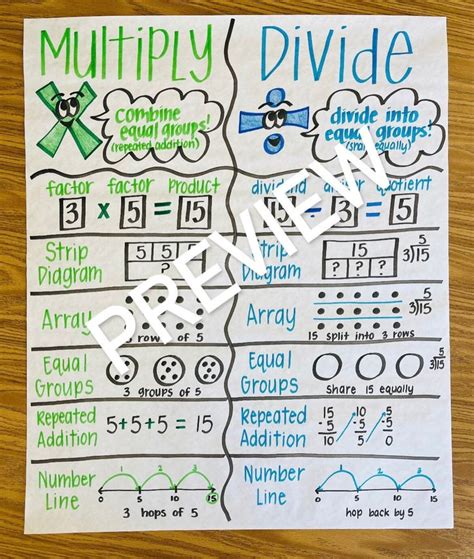 Multiply
combine
equal groups!
(repeated addition)
factor factor product
3 x 5 = 15
Strip
Diagram
5 5 5
?
Array
rows of 5
Equal
Groups
3 groups of 5
Repeated
Addition
5+5+5 = 15
Number
Line
1 2 3
0 5 10 15
3 hops of 5
Divide
divide into
equal groups!
equally)
dividend quotient
15 ÷ 3 = 5
Strip
Diagram
15
? ? ?
5
3)15
Array
5
3)15
15 split into 3 rows
Equal
Groups
5
3)15
Share 15 equally
Repeated
Addition
15 10 5
-5 -5 -5
10 5 0
Number
Line
3 2 1
0 5 10 15
hop back by 5
PREVIEW